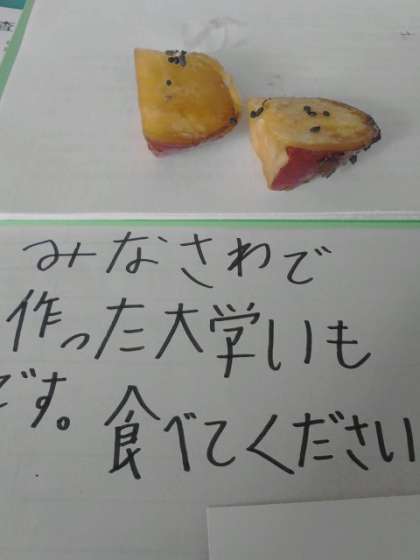 査
みなさわで
作った大学いも
です。食べてください